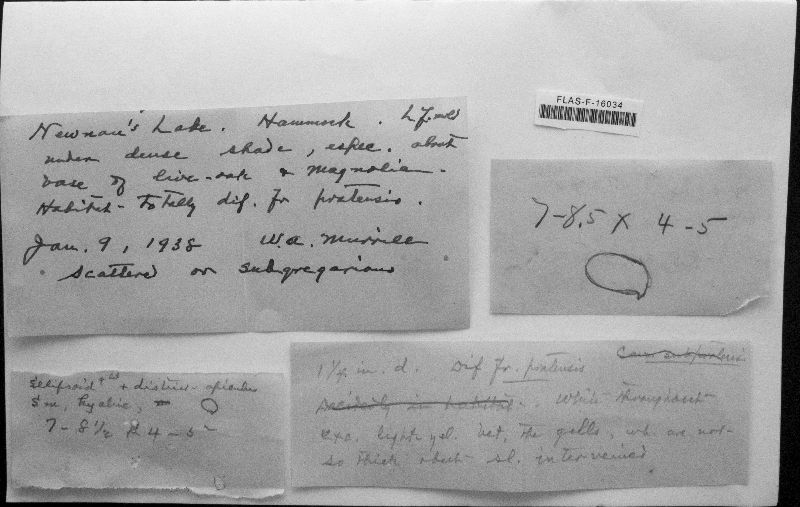 Newnan's Lake. Hammock. L. f. mold
under dense shade, espec. about
base of live-oak & magnolia.
Habitat - totally dif. fr pratensis.
Jan. 9, 1938 W.A. Murrill
scattered or subgregarious
FLAS-F-16034
7-8.5 X 4-5
Ellipsoid + distinc. apiculus
Sm, hyaline,
7-8 1/2 X 4-5
1 1/4 in. d. Dif fr. pratensis Cam. subpratensis
Decidedly in habitat. White throughout
exc. light yel. bet. the gills, wh. are not
so thick about sl. interveined